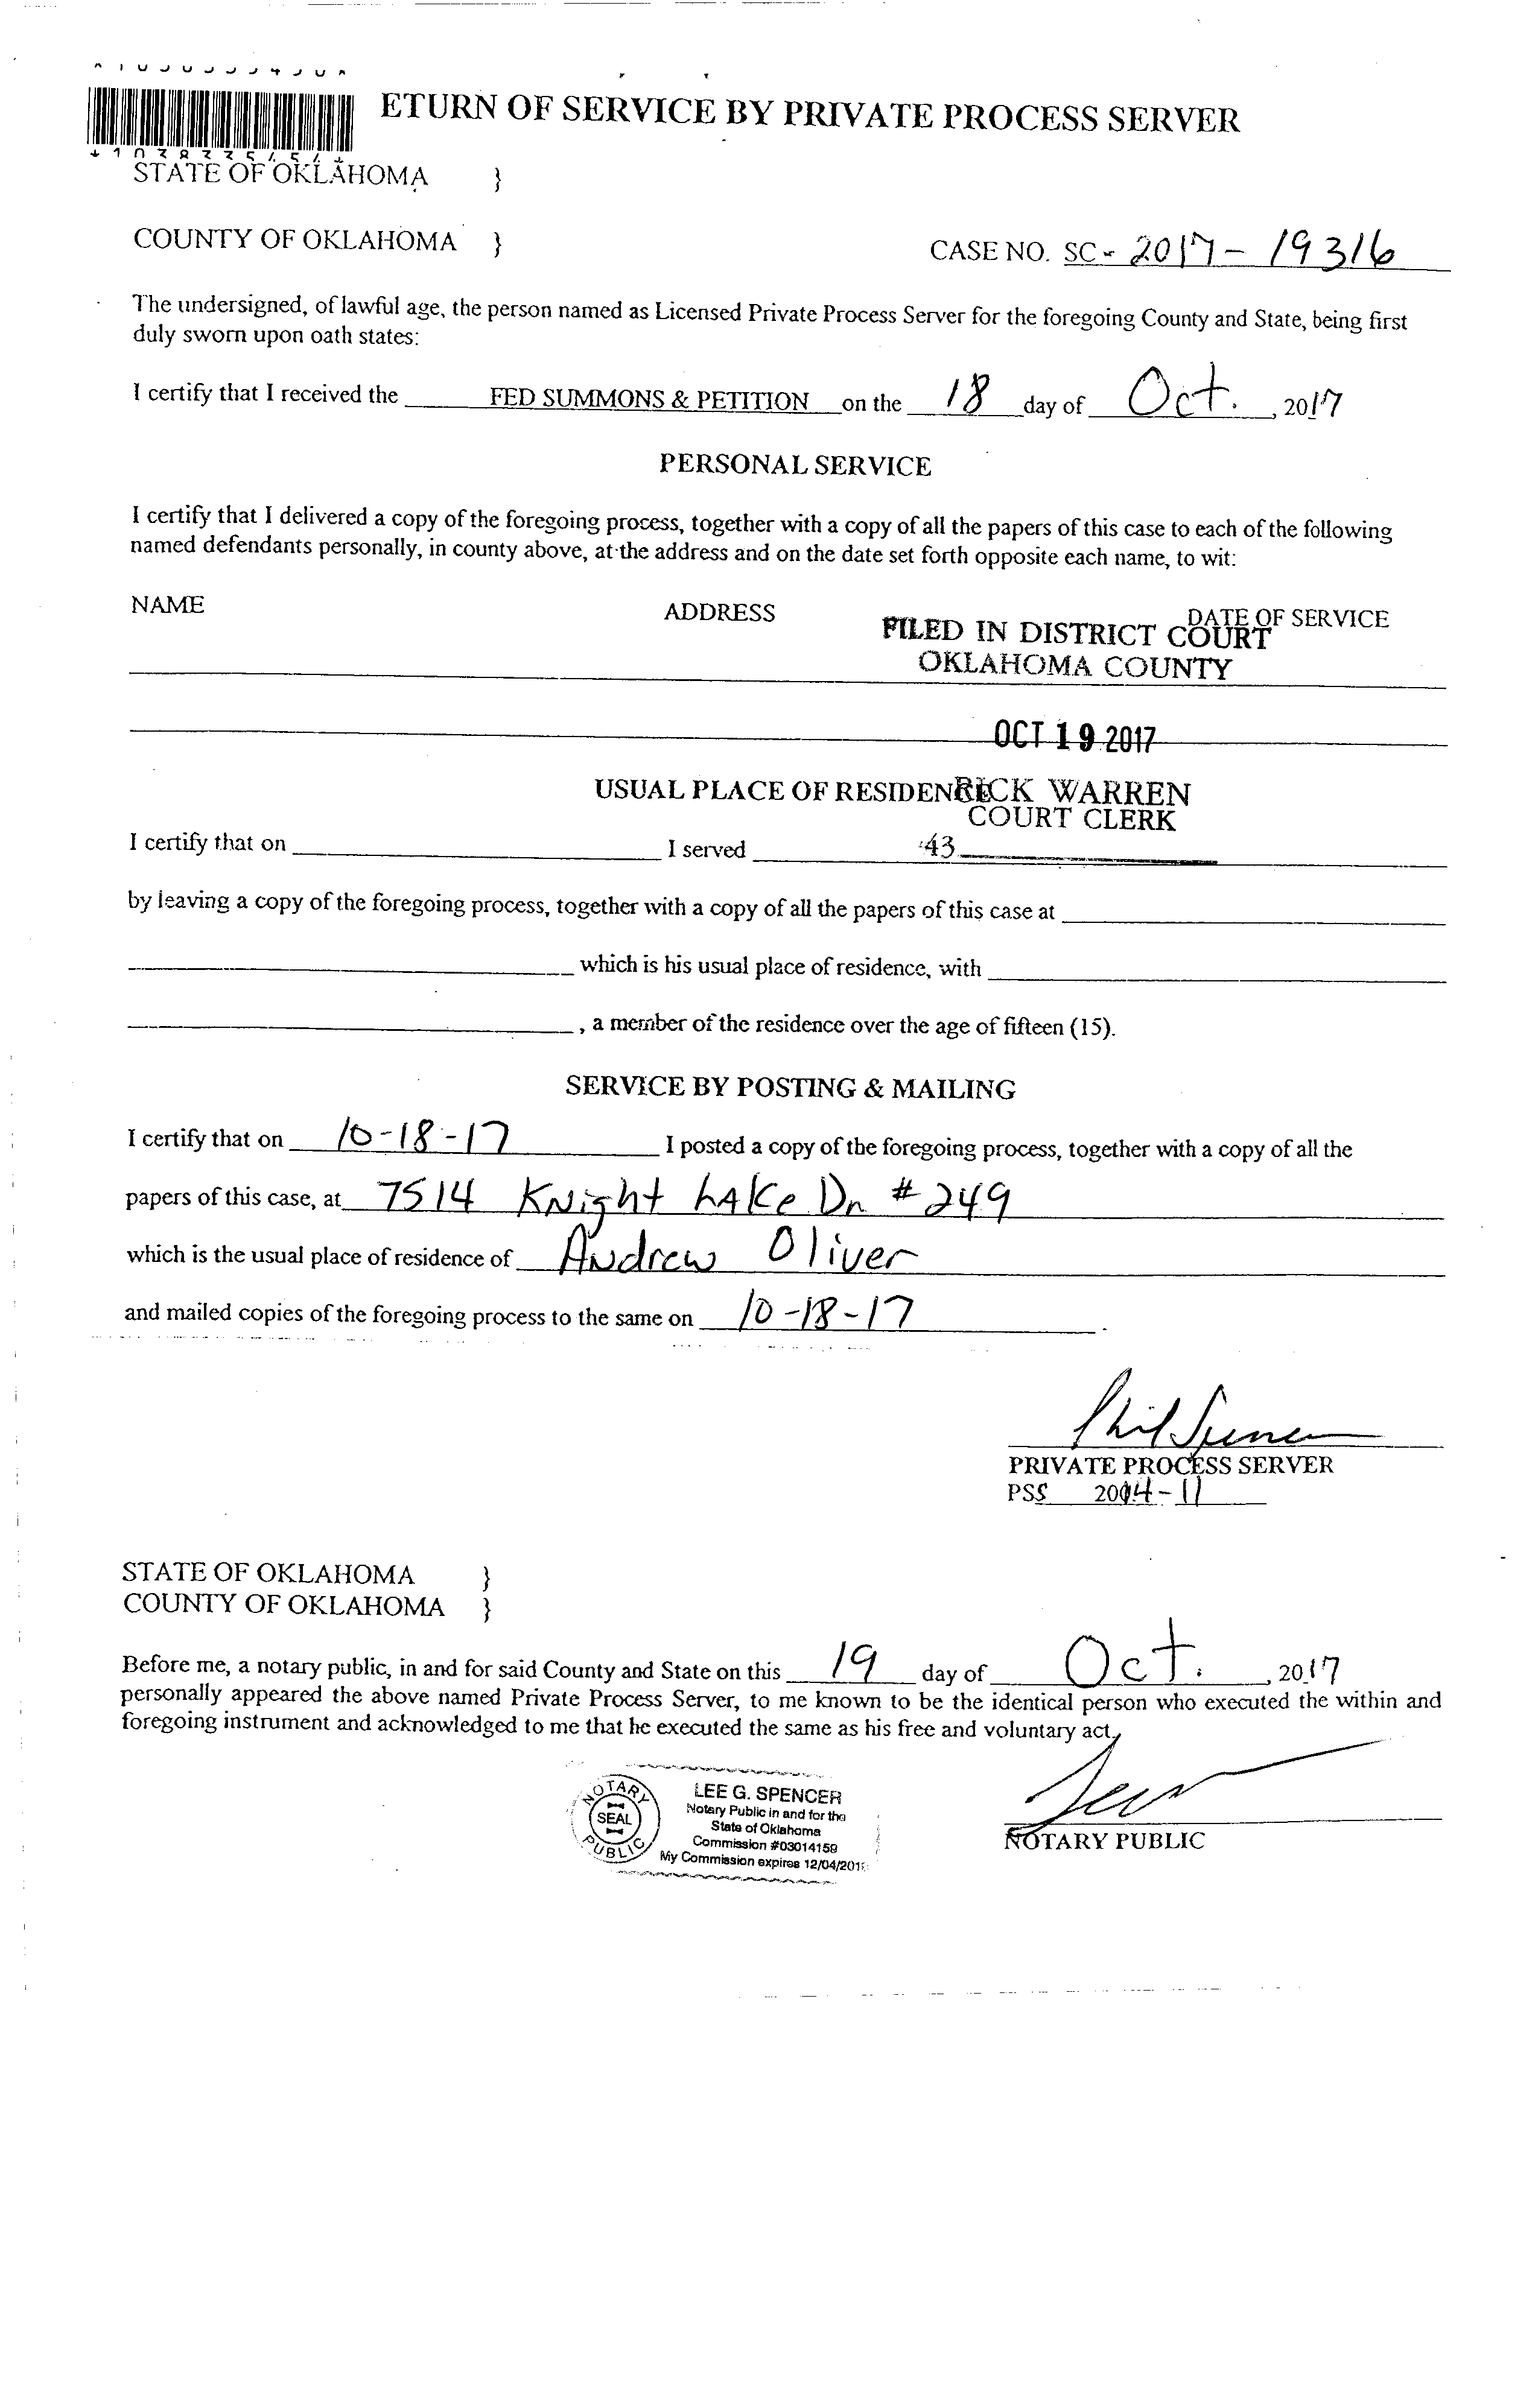 ETURN OF SERVICE BY PRIVATE PROCESS SERVER
STATE OF OKLAHOMA }
COUNTY OF OKLAHOMA }
CASE NO. SC - 2017 - 19316
The undersigned, of lawful age, the person named as Licensed Private Process Server for the foregoing County and State, being first
duly sworn upon oath states:
I certify that I received the FED SUMMONS & PETITION on the 18 day of Oct. , 2017
PERSONAL SERVICE
I certify that I delivered a copy of the foregoing process, together with a copy of all the papers of this case to each of the following
named defendants personally, in county above, at the address and on the date set forth opposite each name, to wit:
NAME ADDRESS DATE OF SERVICE
FILED IN DISTRICT COURT
OKLAHOMA COUNTY
OCT 19 2017
USUAL PLACE OF RESIDENCE
RICK WARREN
COURT CLERK
43
I certify that on I served
by leaving a copy of the foregoing process, together with a copy of all the papers of this case at
which is his usual place of residence, with
, a member of the residence over the age of fifteen (15).
SERVICE BY POSTING & MAILING
I certify that on 10-18-17 I posted a copy of the foregoing process, together with a copy of all the
papers of this case, at 7514 Knight Lake Dr #249
which is the usual place of residence of Andrew Oliver
and mailed copies of the foregoing process to the same on 10-18-17 .
Phil Spencer
PRIVATE PROCESS SERVER
PSS 2014-11
STATE OF OKLAHOMA }
COUNTY OF OKLAHOMA }
Before me, a notary public, in and for said County and State on this 19 day of Oct. , 2017
personally appeared the above named Private Process Server, to me known to be the identical person who executed the within and
foregoing instrument and acknowledged to me that he executed the same as his free and voluntary act.
NOTARY
SEAL
PUBLIC
LEE G. SPENCER
Notary Public in and for the
State of Oklahoma
Commission #03014159
My Commission expires 12/04/201
NOTARY PUBLIC